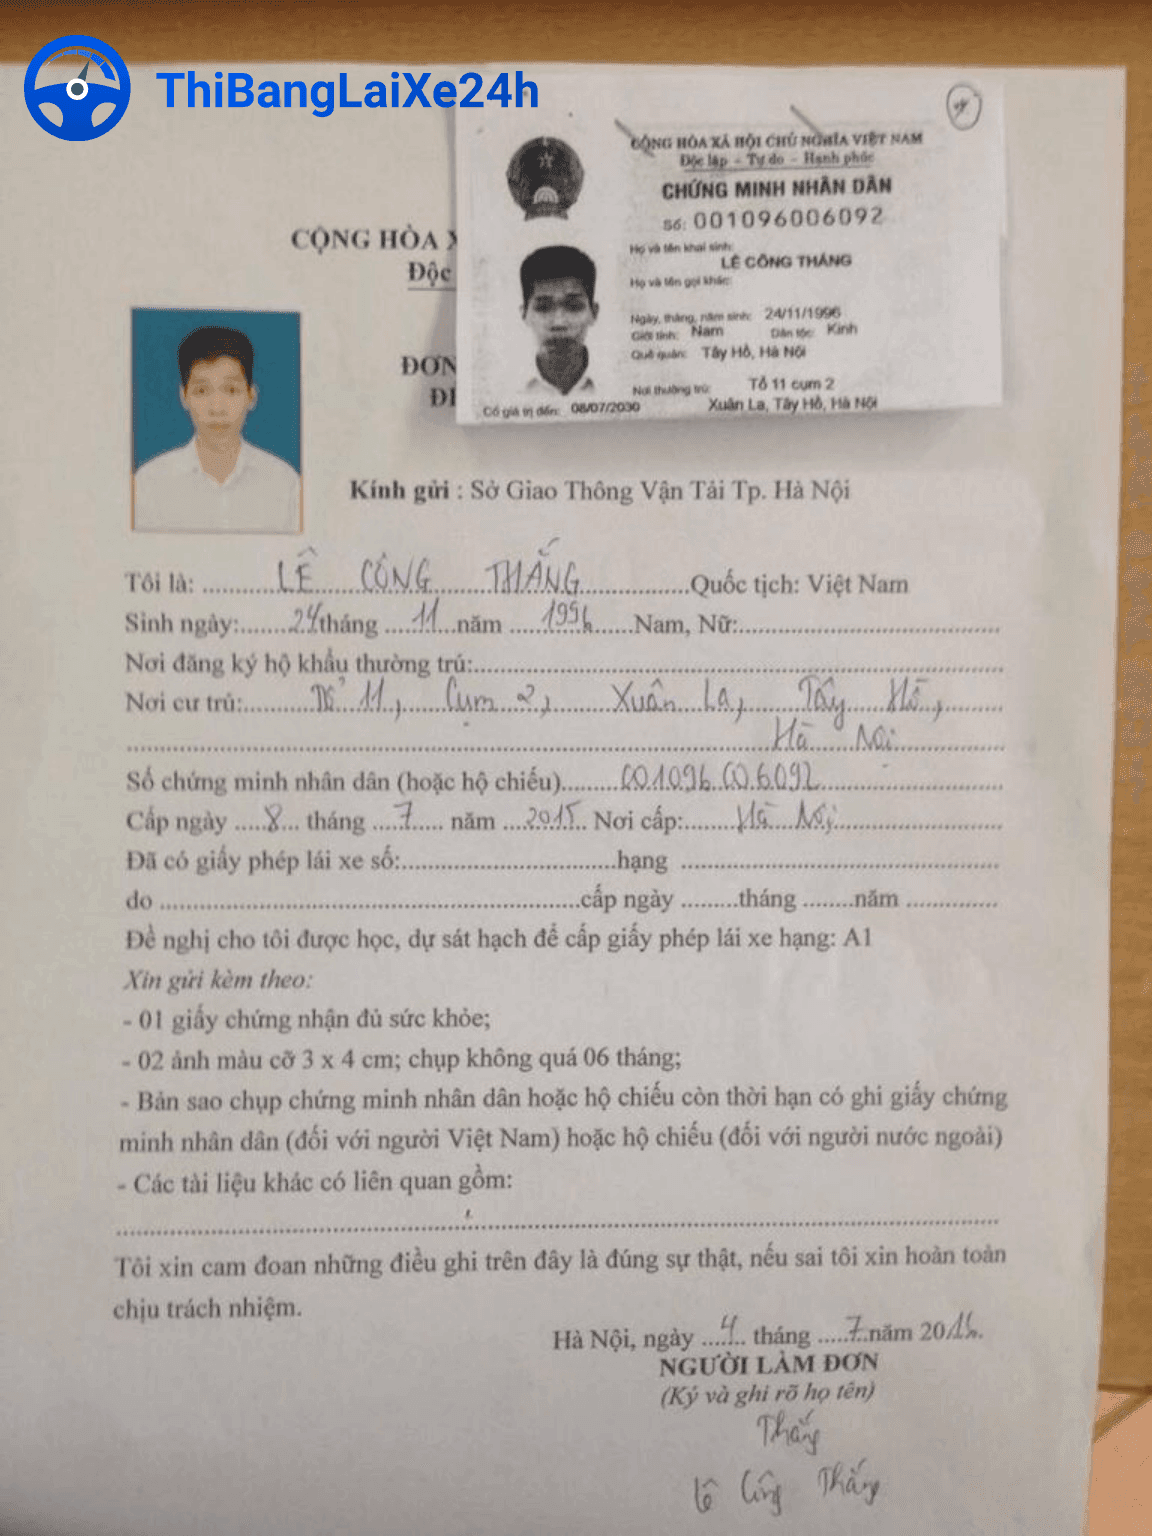 ThiBangLaiXe24h
CỘNG HÒA XÃ HỘI CHỦ NGHĨA VIỆT NAM
Độc lập - Tự do - Hạnh phúc
CHỨNG MINH NHÂN DÂN
Số: 001096006092
Họ và tên khai sinh:
LÊ CÔNG THẮNG
Họ và tên gọi khác:
Ngày, tháng, năm sinh: 24/11/1996
Giới tính: Nam Dân tộc: Kinh
Quê quán: Tây Hồ, Hà Nội
Nơi thường trú: Tổ 11 cụm 2
Xuân La, Tây Hồ, Hà Nội
Có giá trị đến: 08/07/2030
CỘNG HÒA X
Độc
ĐƠN
ĐI
Kính gửi : Sở Giao Thông Vận Tải Tp. Hà Nội
Tôi là: LÊ CÔNG THẮNG Quốc tịch: Việt Nam
Sinh ngày: 24 tháng 11 năm 1996 Nam, Nữ:
Nơi đăng ký hộ khẩu thường trú:
Nơi cư trú: Tổ 11, Cụm 2, Xuân La, Tây Hồ,
Hà Nội
Số chứng minh nhân dân (hoặc hộ chiếu) 001096006092
Cấp ngày 8 tháng 7 năm 2015 Nơi cấp: Hà Nội
Đã có giấy phép lái xe số: hạng
do cấp ngày tháng năm
Đề nghị cho tôi được học, dự sát hạch để cấp giấy phép lái xe hạng: A1
Xin gửi kèm theo:
- 01 giấy chứng nhận đủ sức khỏe;
- 02 ảnh màu cỡ 3 x 4 cm; chụp không quá 06 tháng;
- Bản sao chụp chứng minh nhân dân hoặc hộ chiếu còn thời hạn có ghi giấy chứng
minh nhân dân (đối với người Việt Nam) hoặc hộ chiếu (đối với người nước ngoài)
- Các tài liệu khác có liên quan gồm:
Tôi xin cam đoan những điều ghi trên đây là đúng sự thật, nếu sai tôi xin hoàn toàn
chịu trách nhiệm.
Hà Nội, ngày 4 tháng 7 năm 2016.
NGƯỜI LÀM ĐƠN
(Ký và ghi rõ họ tên)
Thắng
Lê Công Thắng